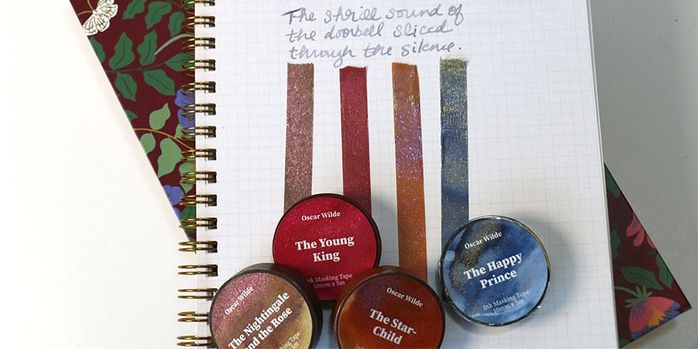 The shrill sound of
the doorbell sliced
through the silence.
Oscar Wilde
The Young
King
Ink Masking Tape
10mm x 5m
Oscar Wilde
The Happy
Prince
Ink Masking Tape
10mm x 5m
Oscar Wilde
The Nightingale
and the Rose
Ink Masking Tape
Oscar Wilde
The Star-
Child